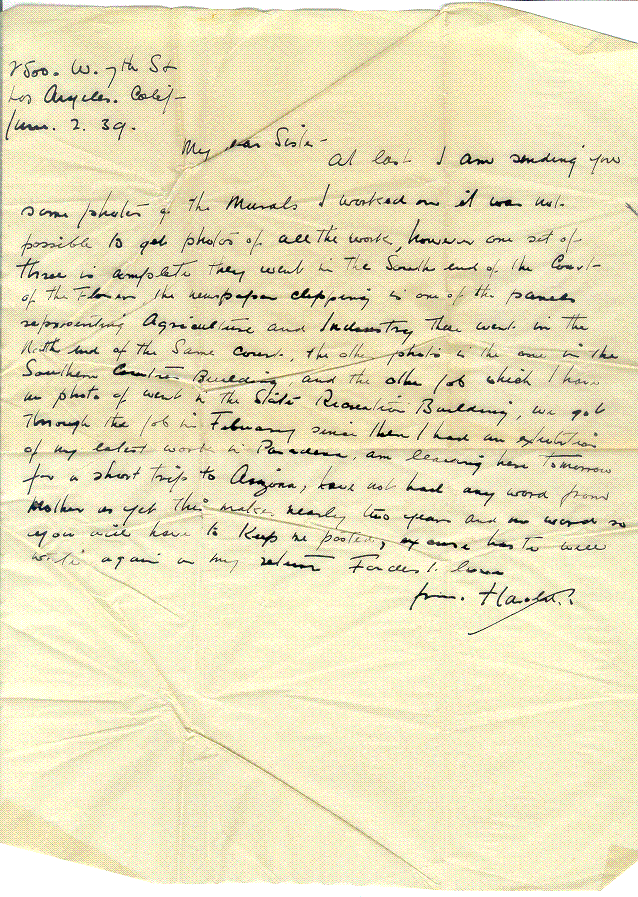 W. 7th St
Los Angeles. Calif-
June. 2. 39.
My dear Sister-
At last I am sending you
some photos of the Murals I worked on it was not
possible to get photos of all the work, however one set of
three is complete they went in the South end of the Court
of the Flowers the newspaper clipping is one of the panels
representing Agriculture and Industry these went in the
North end of the Same court, the other photo is the one in the
Southern Counties Building, and the other job which I have
no photo of went in the State Recreation Building, we got
through the job in February since then I had an exhibition
of my latest work in Pasadena, am leaving here tomorrow
for a short trip to Arizona, have not had any word from
Mother as yet this makes nearly two years and no word so
you will have to Keep me posted, excuse haste will
write again on my return Fondest love
from. Harold.